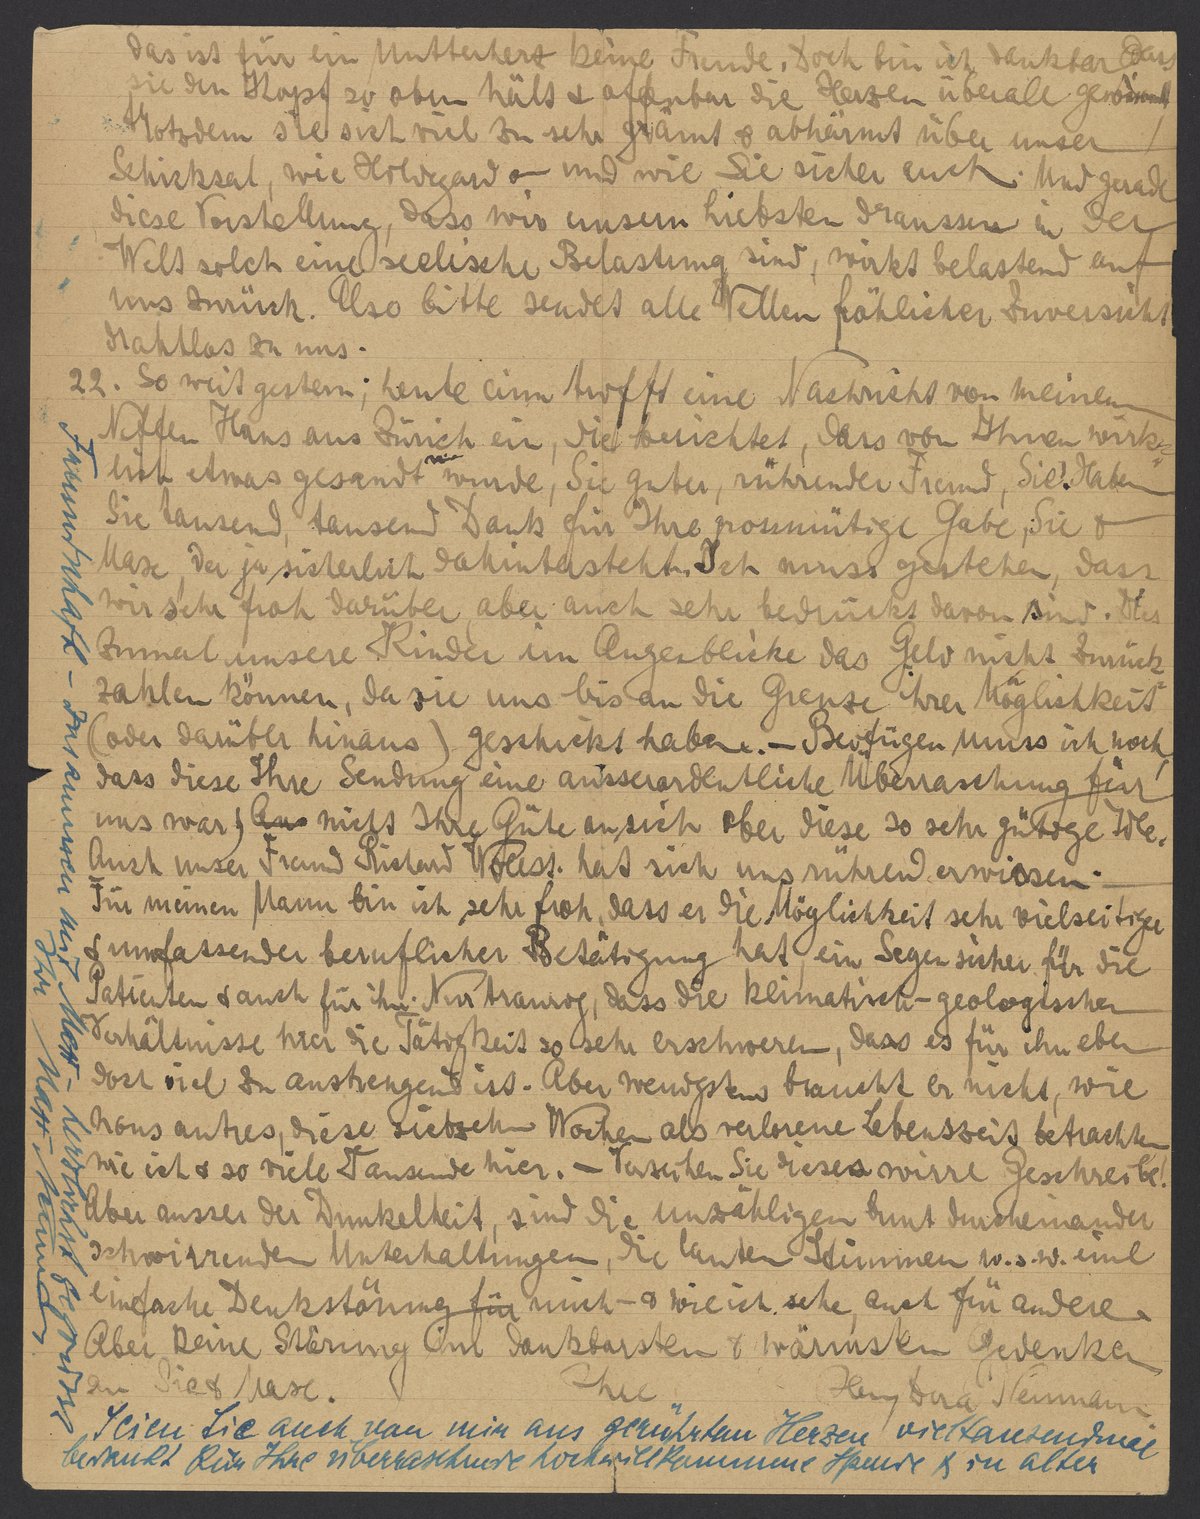 das ist für ein Mutterherz keine Freude. Doch bin ich dankbar dass
sie den Kopf so oben hält & offenbar die Herzen überall gewinnt
trotzdem sie sich viel zu sehr grämt & abhärmt über unser
Schicksal, wie Hildegard & – und wie Sie sicher auch. Und gerade
diese Vorstellung, dass wir unsern Liebsten draussen in der
Welt solch eine seelische Belastung sind, wirkt belastend auf
uns zurück. Also bitte sendet alle Wellen fröhlicher Zuversicht
drahtlos zu uns.
22. So weit gestern; heute trifft eine Nachricht von meinem
Neffen Hans aus Zürich ein, die berichtet, dass von Ihnen wirk-
lich etwas gesandt wurde, Sie guter, rührender Freund, Sie! Haben
Sie tausend, tausend Dank für Ihre grossmütige Gabe, Sie &
Maxe, der ja sicherlich dahintersteht. Ich muss gestehen, dass
wir sehr froh darüber, aber auch sehr bedrückt davon sind. Dies
zumal unsere Kinder im Augenblicke das Geld nicht zurück-
zahlen können, da sie uns bis an die Grenze ihrer Möglichkeit
(oder darüber hinaus) geschickt haben. – Beifügen muss ich noch,
dass diese Ihre Sendung eine ausserordentliche Überraschung für
uns war; nicht Ihre Güte an sich aber diese so sehr gütige Idee.
Auch unser Freund Richard hat sich uns rührend erwiesen. –
Für meinen Mann bin ich sehr froh, dass er die Möglichkeit sehr vielseitiger
& umfassender beruflicher Betätigung hat, ein Segen sicher für die
Patienten & auch für ihn. Nur traurig, dass die klimatisch-geologischen
Verhältnisse hier die Tätigkeit so sehr erschweren, dass es für ihn eben
doch viel zu anstrengend ist. Aber wenigstens braucht er nicht, wie
nous autres, diese siebzehn Wochen als verlorene Lebenszeit betrachten
wie ich & so viele Tausende hier. – Verzeihen Sie dieses wirre Geschreibe!
Aber ausser der Dunkelheit, sind die unzähligen bunt durcheinander
schwirrenden Unterhaltungen, die lauten Stimmen u.s.w. eine
einfache Denkstörung für mich – & wie ich sehe, auch für andere.
Aber keine Störung im dankbarsten & wärmsten Gedenken
an Sie & Maxe. Ihre Dora Neumann.
Seien Sie auch von mir aus gerührtem Herzen vieltausendmal
bedankt für Ihre überraschende hochwillkommene Spende & in alter
Freundschaft – zusammen mit – herzlichst gegrüsst
Ihr Neumann